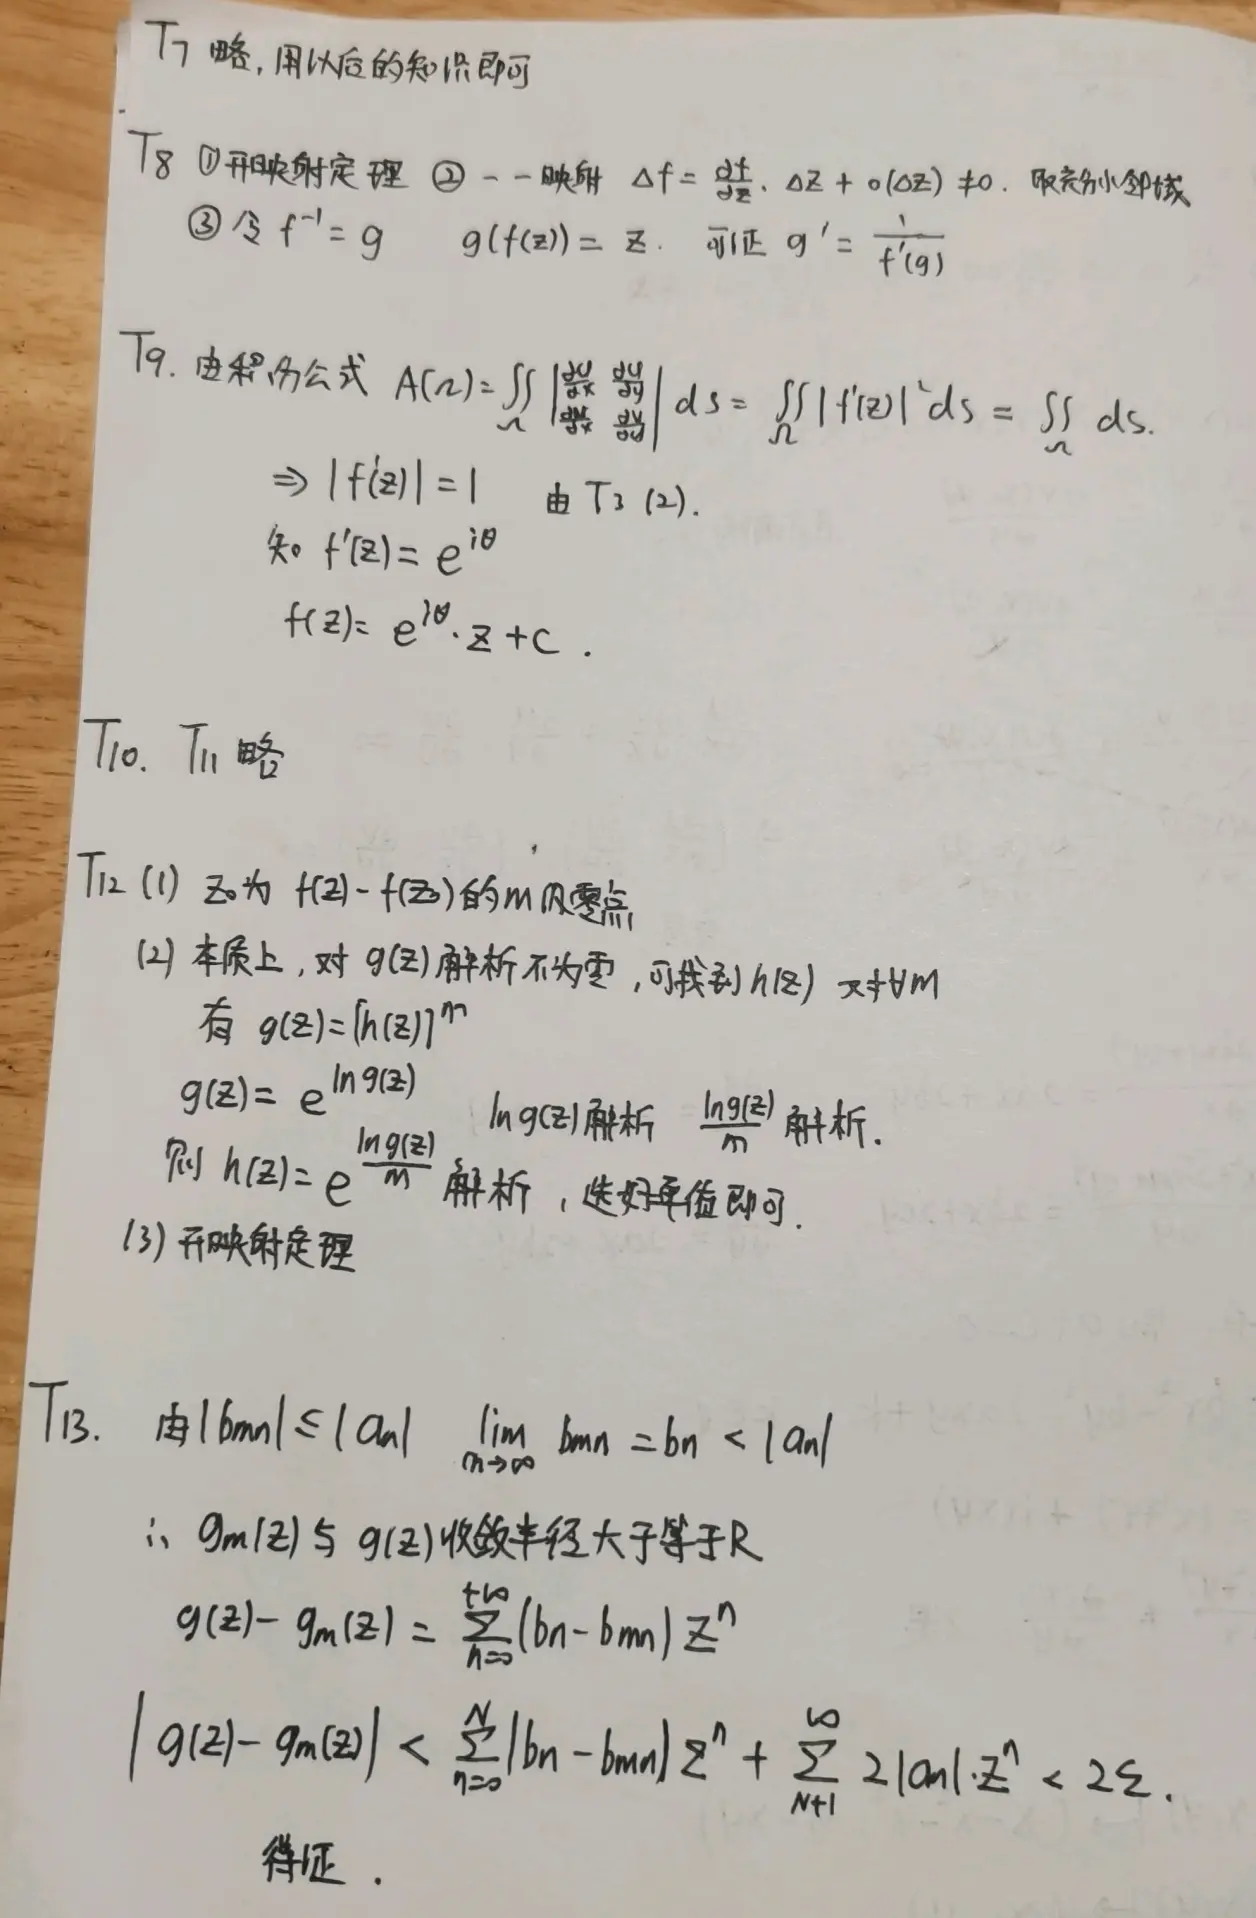 T7 略,用以后的知识即可
T8 ①开映射定理 ② 一一映射 Δf = df/dz · Δz + o(Δz) ≠0. 取充分小邻域
③ 令 f⁻¹ = g g(f(z)) = z. 可证 g' = 1/f'(g)
T9. 由积分公式 A(Ω) = ∬_Ω |∂u/∂x ∂u/∂y ∂v/∂x ∂v/∂y| ds = ∬_Ω |f'(z)|² ds = ∬_Ω ds.
⇒ |f'(z)| = 1 由 T3 (2).
知 f'(z) = e^{iθ}
f(z) = e^{iθ}·z + c.
T10. T11 略
T12 (1) z₀为 f(z) - f(z₀)的m级零点
(2) 本质上,对 g(z)解析不为零,可找到h(z) 对∀m
有 g(z) = [h(z)]^m
g(z) = e^{ln g(z)} ln g(z)解析 ln g(z)/m 解析.
则 h(z) = e^{ln g(z)/m} 解析,选好单值即可.
(3) 开映射定理
T13. 由|bmn| ≤ |an| lim_{m→∞} bmn = bn < |an|
∴ gm(z)与 g(z)收敛半径大于等于R
g(z) - gm(z) = Σ_{n=0}^{+∞} (bn - bmn) z^n
|g(z) - gm(z)| < Σ_{n=0}^{N} |bn - bmn| z^n + Σ_{N+1}^{∞} 2|an|·z^n < 2ε.
得证.